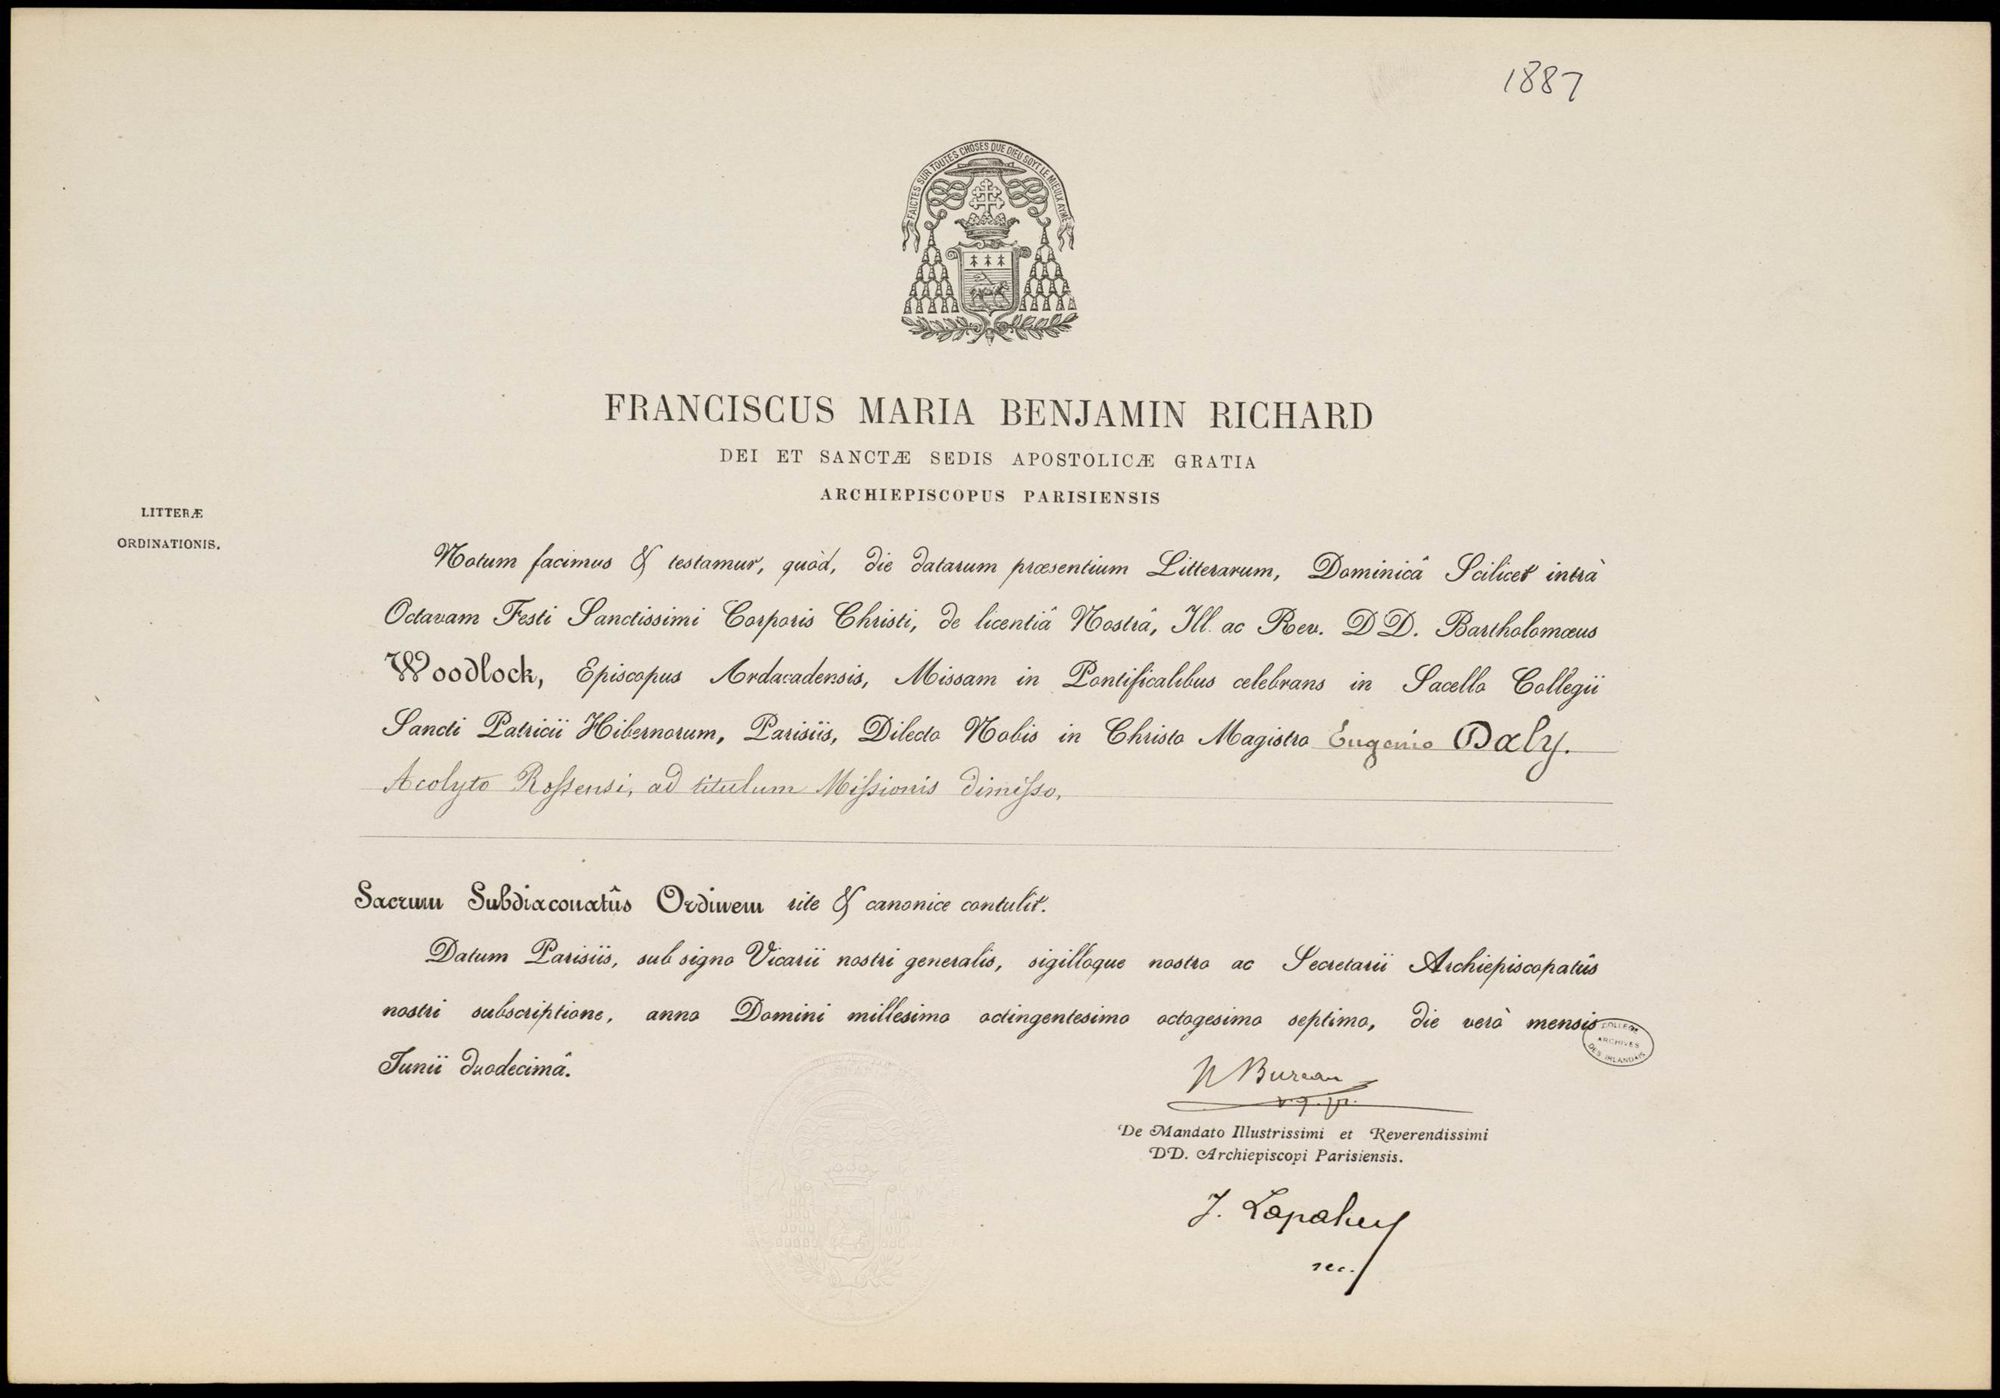 1887
FAICTES SUR TOUTES CHOSES QUE DIEU SOYT LE MIEULX AYMÉ
FRANCISCUS MARIA BENJAMIN RICHARD
DEI ET SANCTÆ SEDIS APOSTOLICÆ GRATIA
ARCHIEPISCOPUS PARISIENSIS
LITTERÆ
ORDINATIONIS.
Notum facimus & testamur, quòd, die datarum præsentium Litterarum, Dominicâ Scilicet intrà
Octavam Festi Sanctissimi Corporis Christi, de licentiâ Nostrâ, Ill. ac Rev. DD. Bartholomæus
Woodlock, Episcopus Ardacadensis, Missam in Pontificalibus celebrans in Sacello Collegii
Sancti Patricii Hibernorum, Parisiis, Dilecto Nobis in Christo Magistro Eugenio Daly.
Acolyto Rossensi, ad titulum Missionis dimisso,
Sacrum Subdiaconatûs Ordinem rite & canonice contulit.
Datum Parisiis, sub signo Vicarii nostri generalis, sigilloque nostro ac Secretarii Archiepiscopatûs
nostri subscriptione, anno Domini millesimo octingentesimo octogesimo septimo, die verò mensis
Junii duodecimâ.
COLLEGE
ARCHIVES
DES IRLANDAIS
Bureau
v.g.
De Mandato Illustrissimi et Reverendissimi
DD. Archiepiscopi Parisiensis.
J. Lapaluy
sec.